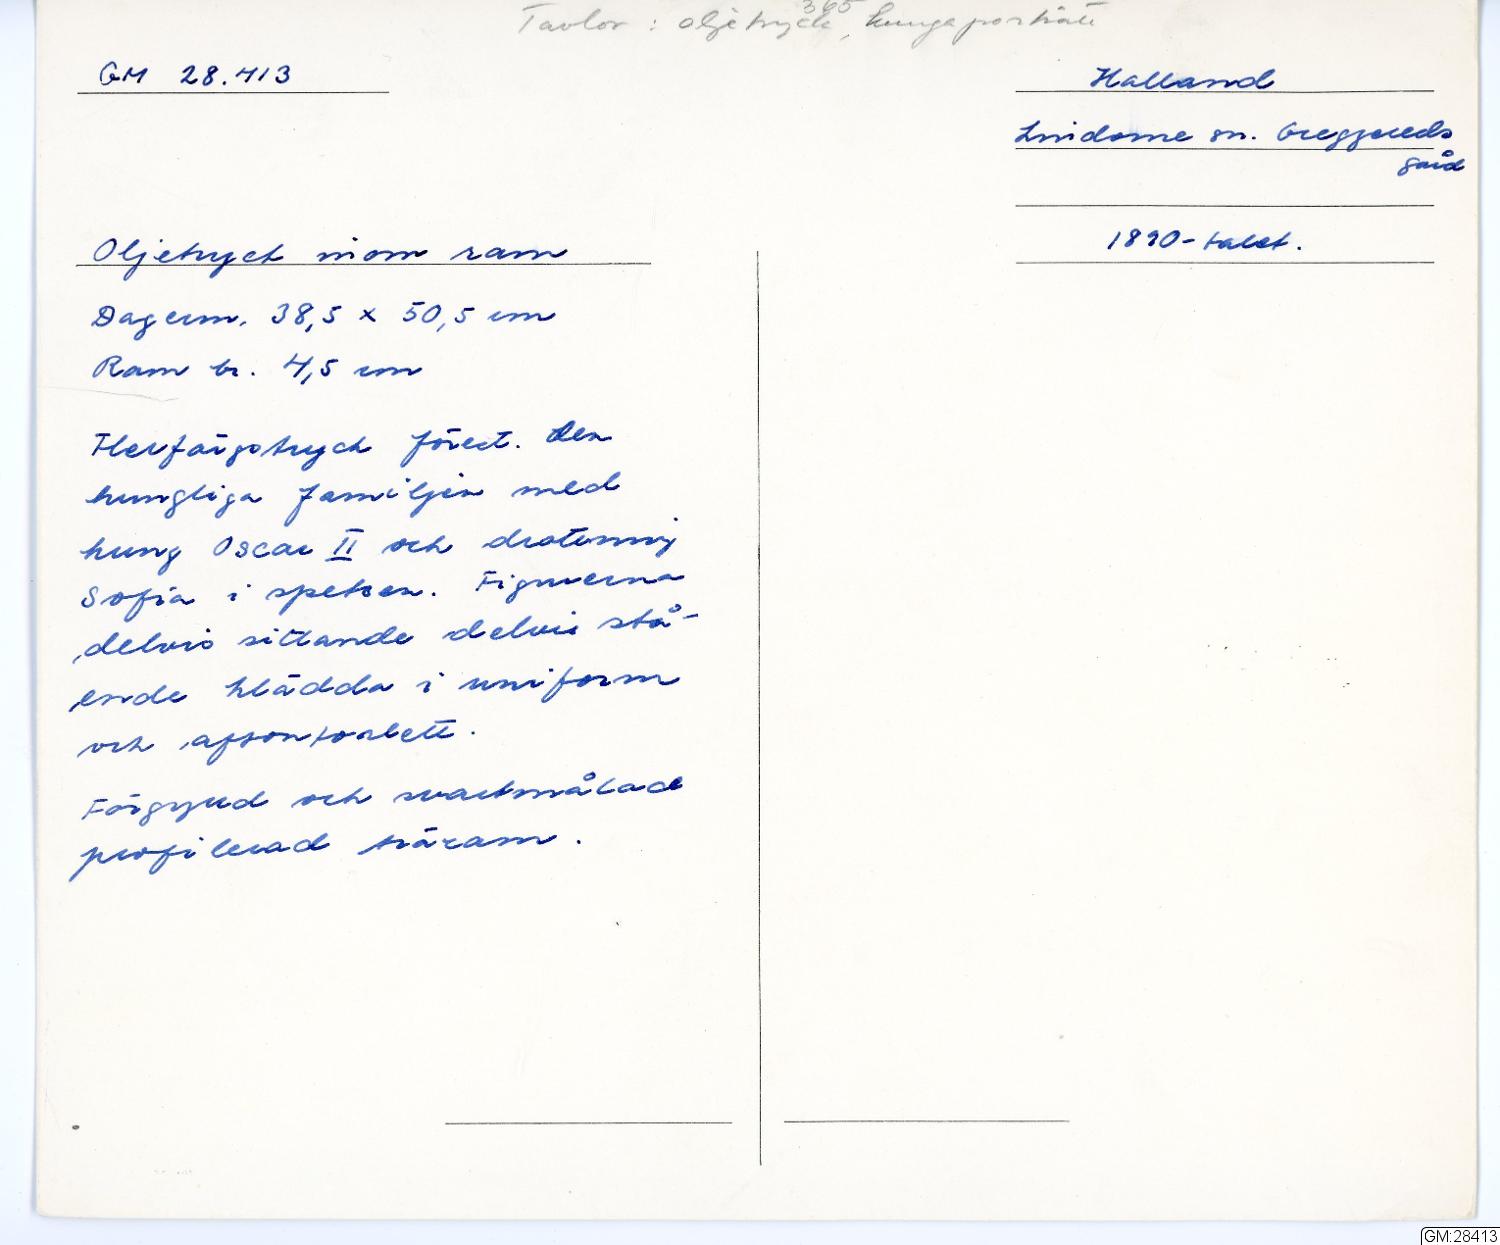 365
Tavlor : oljetryck, kungaporträtt
GM 28.413
Halland
Lindome sn. Greggereds
gård
1890-talet.
Oljetryck inom ram
Dagerm. 38,5 x 50,5 cm
Ram br. 4,5 cm
Flerfärgstryck förest. den
kungliga familjen med
kung Oscar II och drottning
Sofia i spetsen. Figurerna
delvis sittande delvis stå-
ende klädda i uniform
och aftontoalett.
Förgylld och svartmålad
profilerad träram.
GM:28413